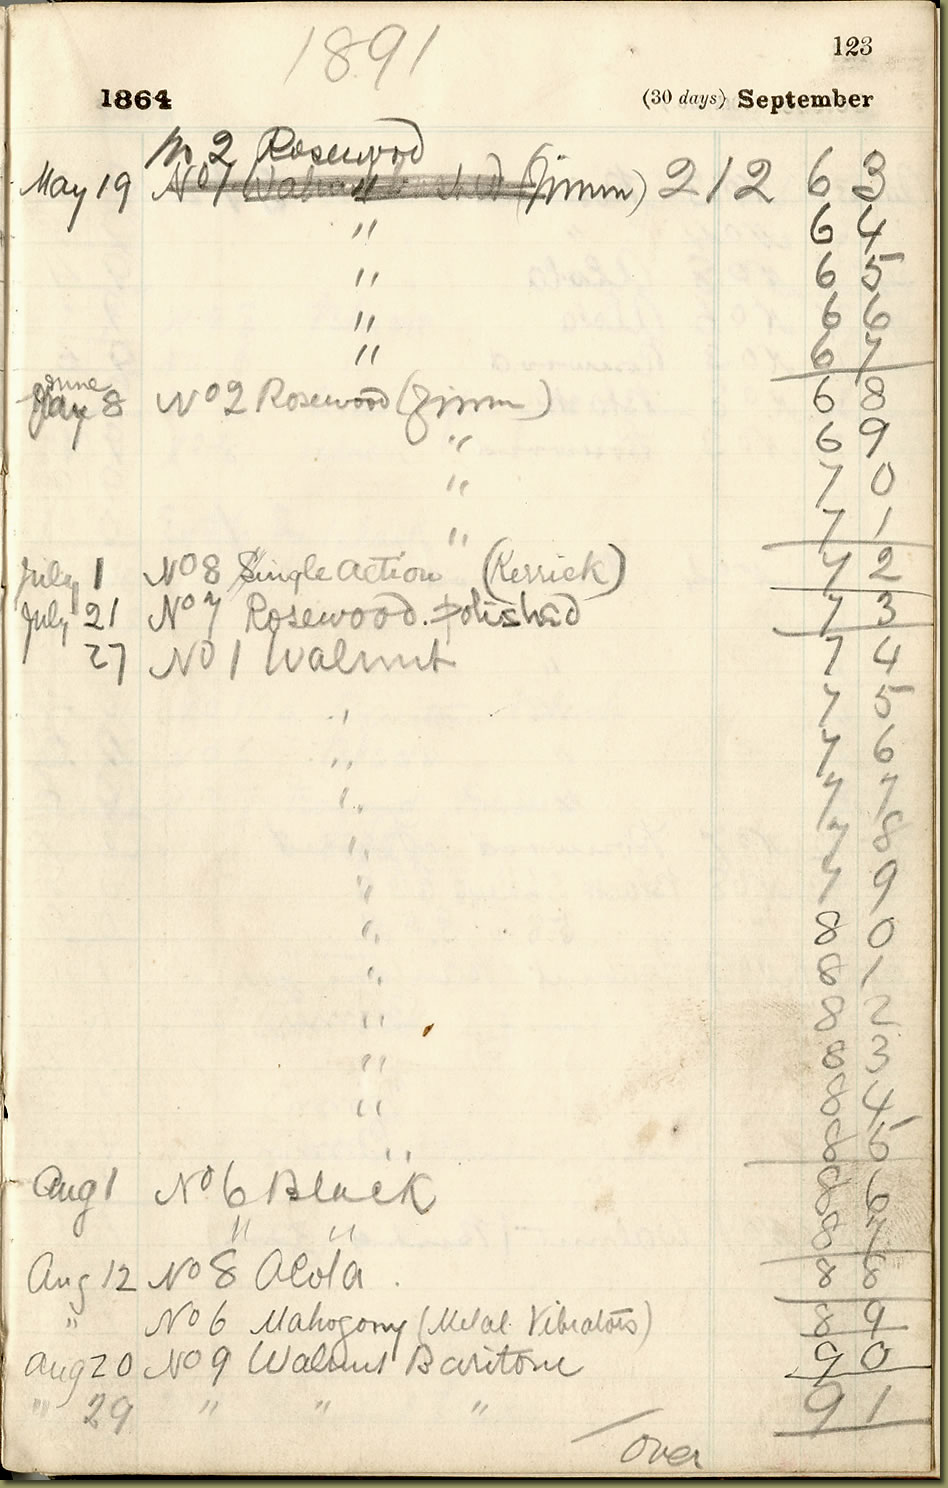 1891
123
1864 (30 days) September
No 2 Rosewood
May 19 No 1 (Jimm) 212 63
" 64
" 65
" 66
" 67
June 8 No 2 Rosewood (Jimm) 68
" 69
" 70
" 71
July 1 No 8 Single action (Kerrick) 72
July 21 No 7 Rosewood. polished 73
27 No 1 Walnut 74
" 75
" 76
" 77
" 78
" 79
" 80
" 81
" 82
" 83
" 84
" 85
Aug 1 No 6 Black 86
" " 87
Aug 12 No 8 Aeola. 88
" No 6 Mahogony (Metal Vibrators) 89
Aug 20 No 9 Walnut Baritone 90
" 29 " " " 91
over